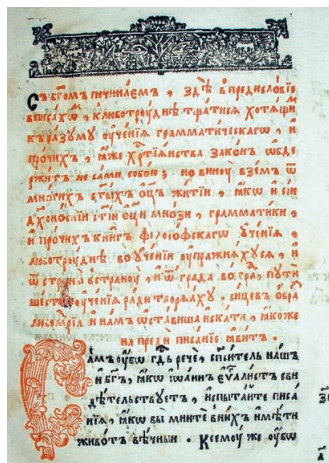 Съ бг҃омъ починаемъ , здѣ впредисловїе
вписахѡⷨ , клюботрꙋднѣ тщатисѧ хотѧщиⷨ
къразꙋмꙋ оучєнїѧ грамматическагѡ , и
прочихъ , ꙗже хрⷭ҇тїѧнства законъ ѡбде
ржитъ не сами собою ; но винꙋ вземъ ѿ
многихъ ст҃ыхъ ѡц҃ъ житїи , ꙗкѡ и
дх҃оноснїи ст҃їи оц҃и мнози , грамматики ,
и прочихъ книгъ фелосоѳскагѡ оученїѧ ,
люботрꙋднѣ во оученїи оупражнѧхꙋсѧ , и
ѿ страны встранꙋ , и ѿ града во граⷣ , пꙋти
шествїе оученїѧ ради творѧхꙋ . сицевъ ѻбраⷥ
и намъ ѡставиша искати , ꙗкоже
на преди писанїе ꙗвитъ .
Самъ оубѡ гдⷭ҇ь рече , сп҃ситель нашъ
и бг҃ъ , ꙗкѡ їѡаннъ еѵⷢ҇алистъ сви
дѣтельствꙋетъ , испытайте писа
нїѧ , ꙗкѡ вы мните вних имѣти
животъ вѣчный . Ксемꙋ же оубѡ